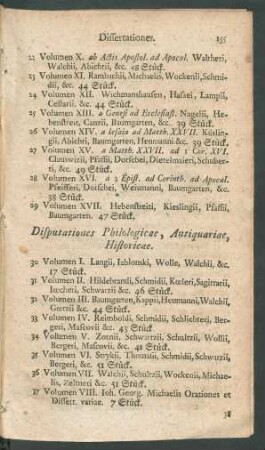 Dissertationes. 155
22 Volumen X. ab Actis Apostol. ad Apocal. Waltheri,
Walchii, Abichtii, &c. 48 Stück.
23 Volumen XI. Rambachii, Michaelis, Wockenii, Schmi-
dii, &c. 44 Stück.
24 Volumen XII. Wichmanshausen, Hafaei, Lampii,
Cellarii, &c. 44 Stück.
25 Volumen XIII. a Genesi ad Ecclesiast. Nagelii, Hebe-
benstreitii, Cantii, Baumgarten, &c. 39 Stück.
26 Volumen XIV. a Iesaia ad Matth. XXVII. Kislin-
gii, Abichtl, Baumgarten, Heumanni &c. 39 Stück.
27 Volumen XV. a Matth. XXVII. ad 1 Cor. XVI.
Clauswitzii, Pfaffii, Dorschei, Dietelmaieri, Schuber-
ti, &c. 49 Stück.
28 Volumen XVI. a 2 Epist. ad Corinth. ad Apocal.
Pfeifferi, Dorschei, Weismanni, Baumgarten, &c.
38 Stück
29 Volumen XVII. Hebenstreitii, Kieslingii, Pfaffii,
Baumgarten. 47 Stück.
Disputationes Philologicae, Antiquariae,
Historicae.
30 Volumen I. Langii, Iablonski, Wolle, Walchii, &c.
17 Stück.
31 Volumen II. Hildebrandi, Schmidii, Koeleri, Sagittarii,
Ircheri, Schwartzii &c. 46 Stück.
32 Volumen III. Baumgarten, Kappii, Heumanni, Walchii,
Gertzii &c. 44 Stück
33 Volumen IV. Reimboldi, Schmidii, Schlichteri, Ber-
geri, Mascovii &c. 43 Stück
34 Volumen V. Zornii, Schwartzii, Schultzii, Wollii,
Bergeri, Mascovii &c. 48 Stück.
35 Volumen VI. Strykii, Thomasii, Schmidii, Schwartzii,
Bergeri, &c. 51 Stück.
36 Volumen VII. Walchii, Schultzii, Wockenii, Michae-
lis, Zeltneri &c. 51 Stück.
37 Volumen VIII. Ioh. Georg. Michaelis Orationes et
Dissert. variae. 7 Stück.
38